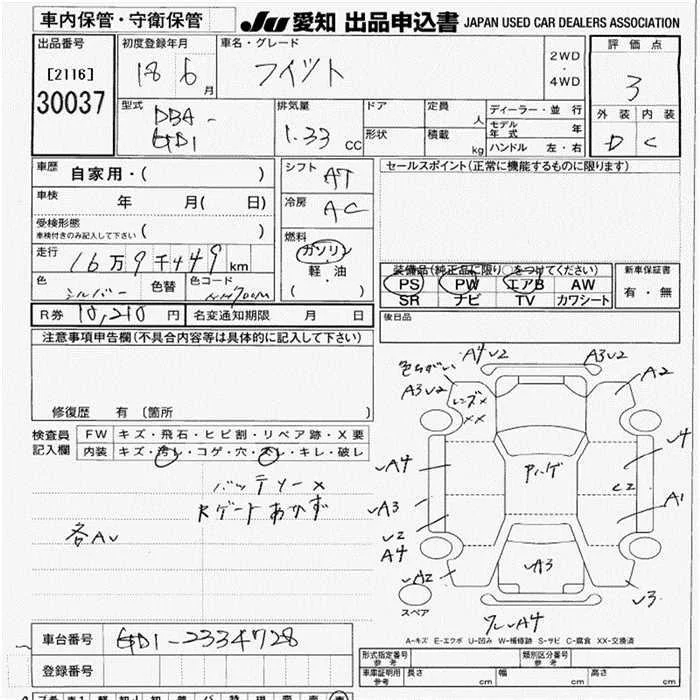 車内保管・守衛保管
JU 愛知 出品申込書 JAPAN USED CAR DEALERS ASSOCIATION
出品番号
[2116]
30037
初度登録年月
18 6月
車名・グレード
フイット
2WD
・
4WD
評価点
3
外装 内装
D C
型式
DBA-
GD1
排気量
1.33 CC
ドア
形状
定員 人
積載 kg
ディーラー・並行
モデル年式 年
ハンドル 左・右
車歴
自家用・( )
車検
年 月( 日)
受検形態
車検付きのみ記入して下さい ( )
走行
16万9千449km
色
シルバー
色替
色コード
NH700M
シフト
AT
冷房
AC
燃料
ガソリン
軽・油
( )
セールスポイント(正常に機能するものに限ります)
装備品(純正品に限り○をつけてください)
PS PW エアB AW
SR ナビ TV カワシート
新車保証書
有・無
後日品
R券 10,210円
名変通知期限 月 日
注意事項申告欄(不具合内容等は具体的に記入して下さい)
修復歴 有 [箇所 ]
検査員
記入欄
FW キズ・飛石・ヒビ割・リペア跡・X要
内装 キズ・汚レ・コゲ・穴・スレ・キレ・破レ
バッテリー×
Rゲートあかず
各AU
色ちがい
A4U2
A3U2
A3U2
レンズ×
XX
A2
A4
U4
Aハゲ
A3
U2
A4
A1
A2
UA3
U3
スペア
A4
A-キズ E-エクボ U-凹み W-補修跡 S-サビ C-腐食 XX-交換済
車台番号
GD1-2334728
登録番号
形式指定番号
参考
類別区分番号
参考
車庫証明用
参考
長さ 幅 高さ